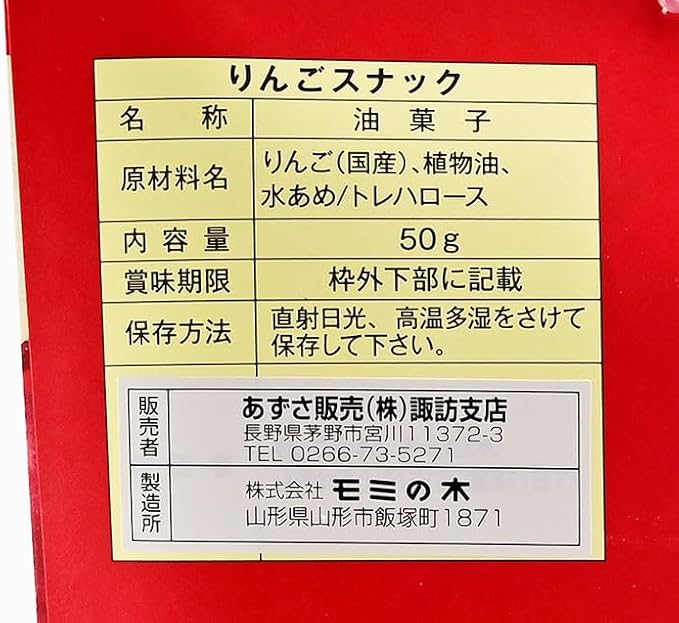 りんごスナック
名称 油菓子
原材料名 りんご(国産)、植物油、
水あめ/トレハロース
内容量 50g
賞味期限 枠外下部に記載
保存方法 直射日光、高温多湿をさけて
保存して下さい。
販売者 あずさ販売(株)諏訪支店
長野県茅野市宮川11372-3
TEL 0266-73-5271
製造所 株式会社 モミの木
山形県山形市飯塚町1871